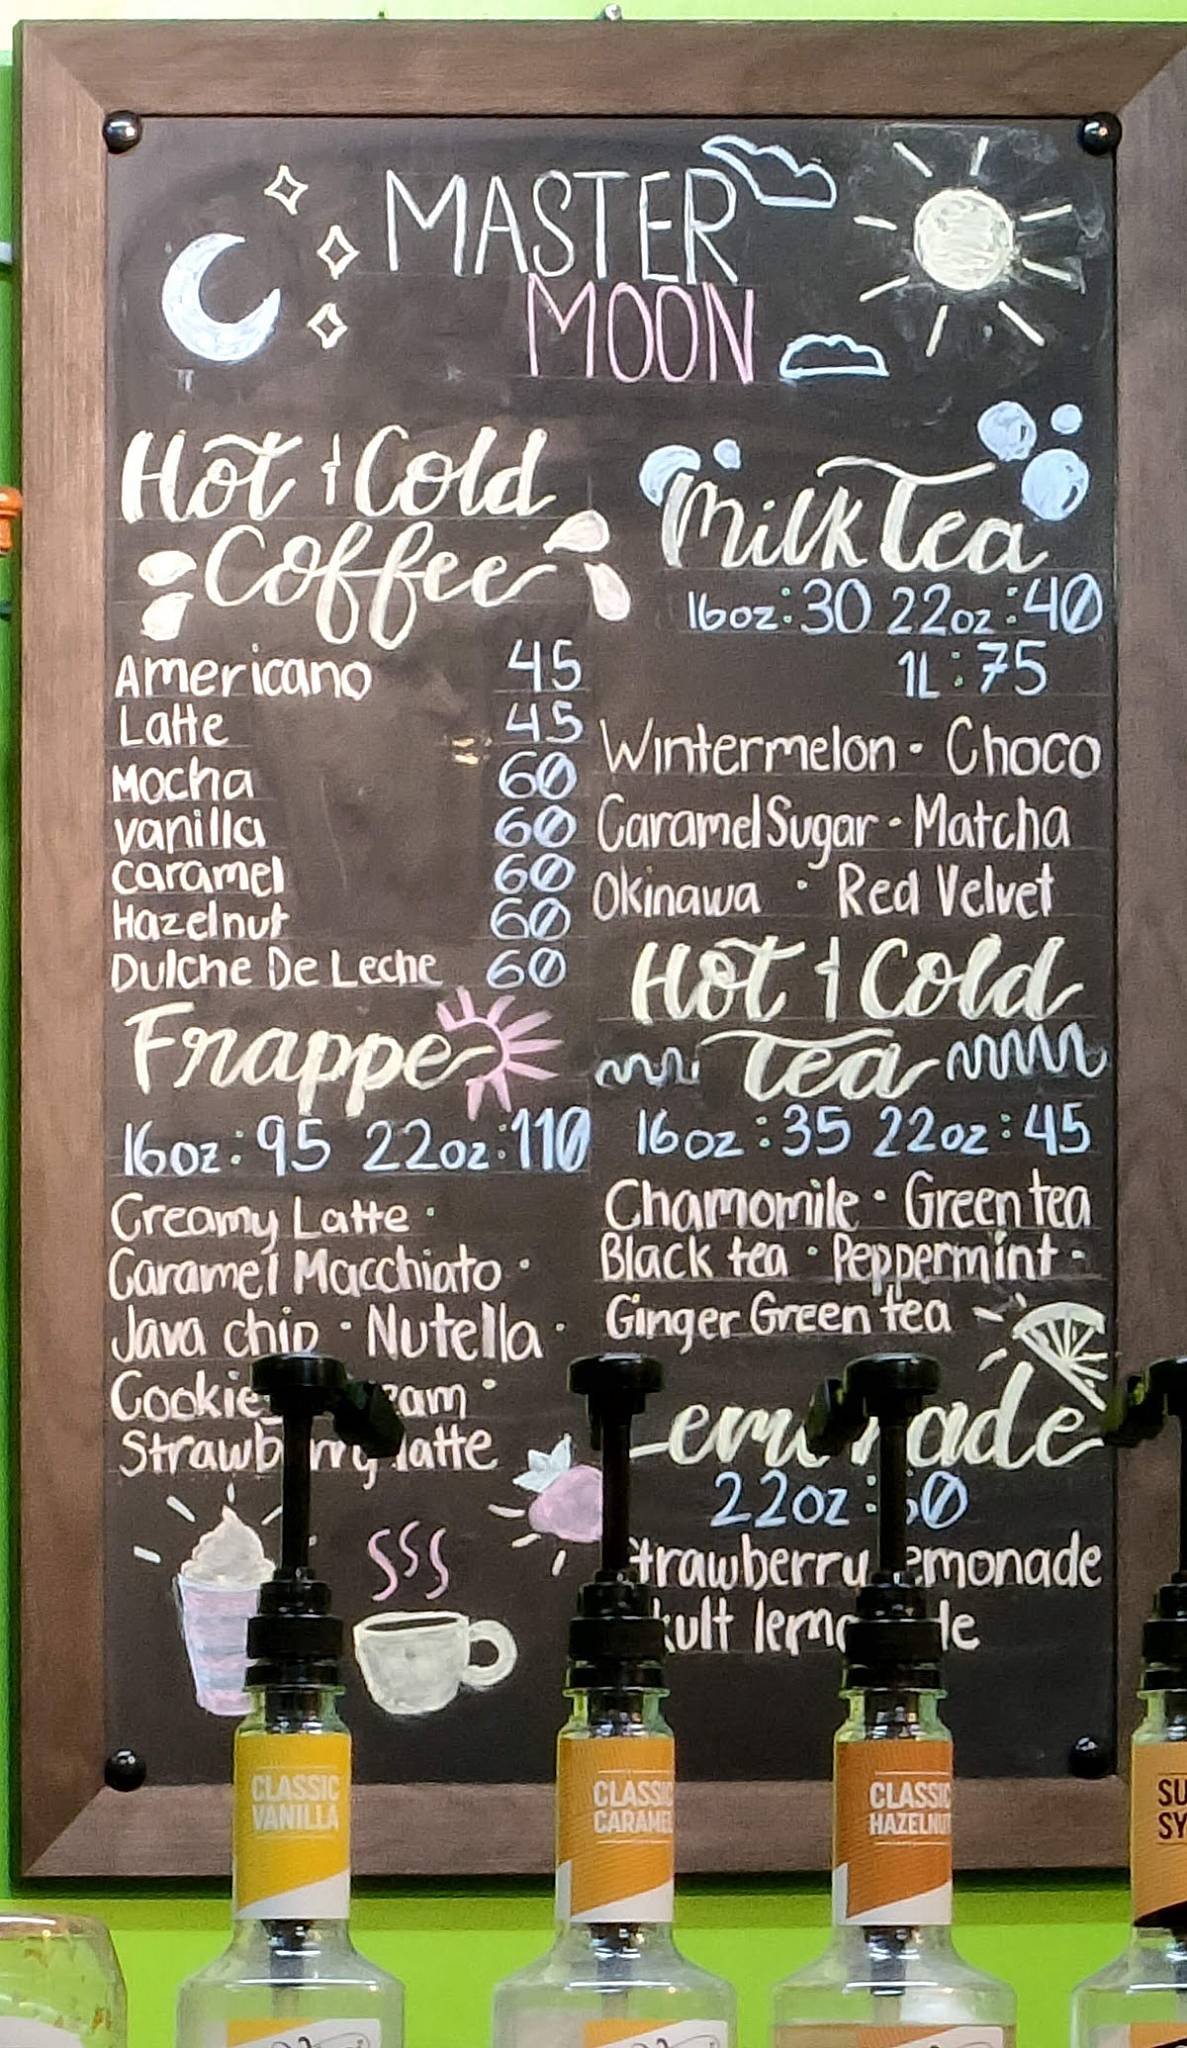 MASTER
MOON
Hot & Cold
Coffee
Americano 45
Latte 45
Mocha 60
vanilla 60
caramel 60
Hazelnut 60
Dulche De Leche 60
Frappe
16oz: 95 22oz: 110
Creamy Latte ·
Caramel Macchiato ·
Java chip · Nutella ·
Strawberry latte
Milk Tea
16oz: 30 22oz: 40
1L: 75
Wintermelon · Choco
Caramel Sugar · Matcha
Okinawa · Red Velvet
Hot & Cold
Tea
16oz: 35 22oz: 45
Chamomile · Green tea
Black tea · Peppermint ·
Ginger Green tea
Lemonade
22oz:
Strawberry lemonade
lemonade
CLASSIC
VANILLA
CLASSIC
CARAMEL
CLASSIC
HAZELNUT